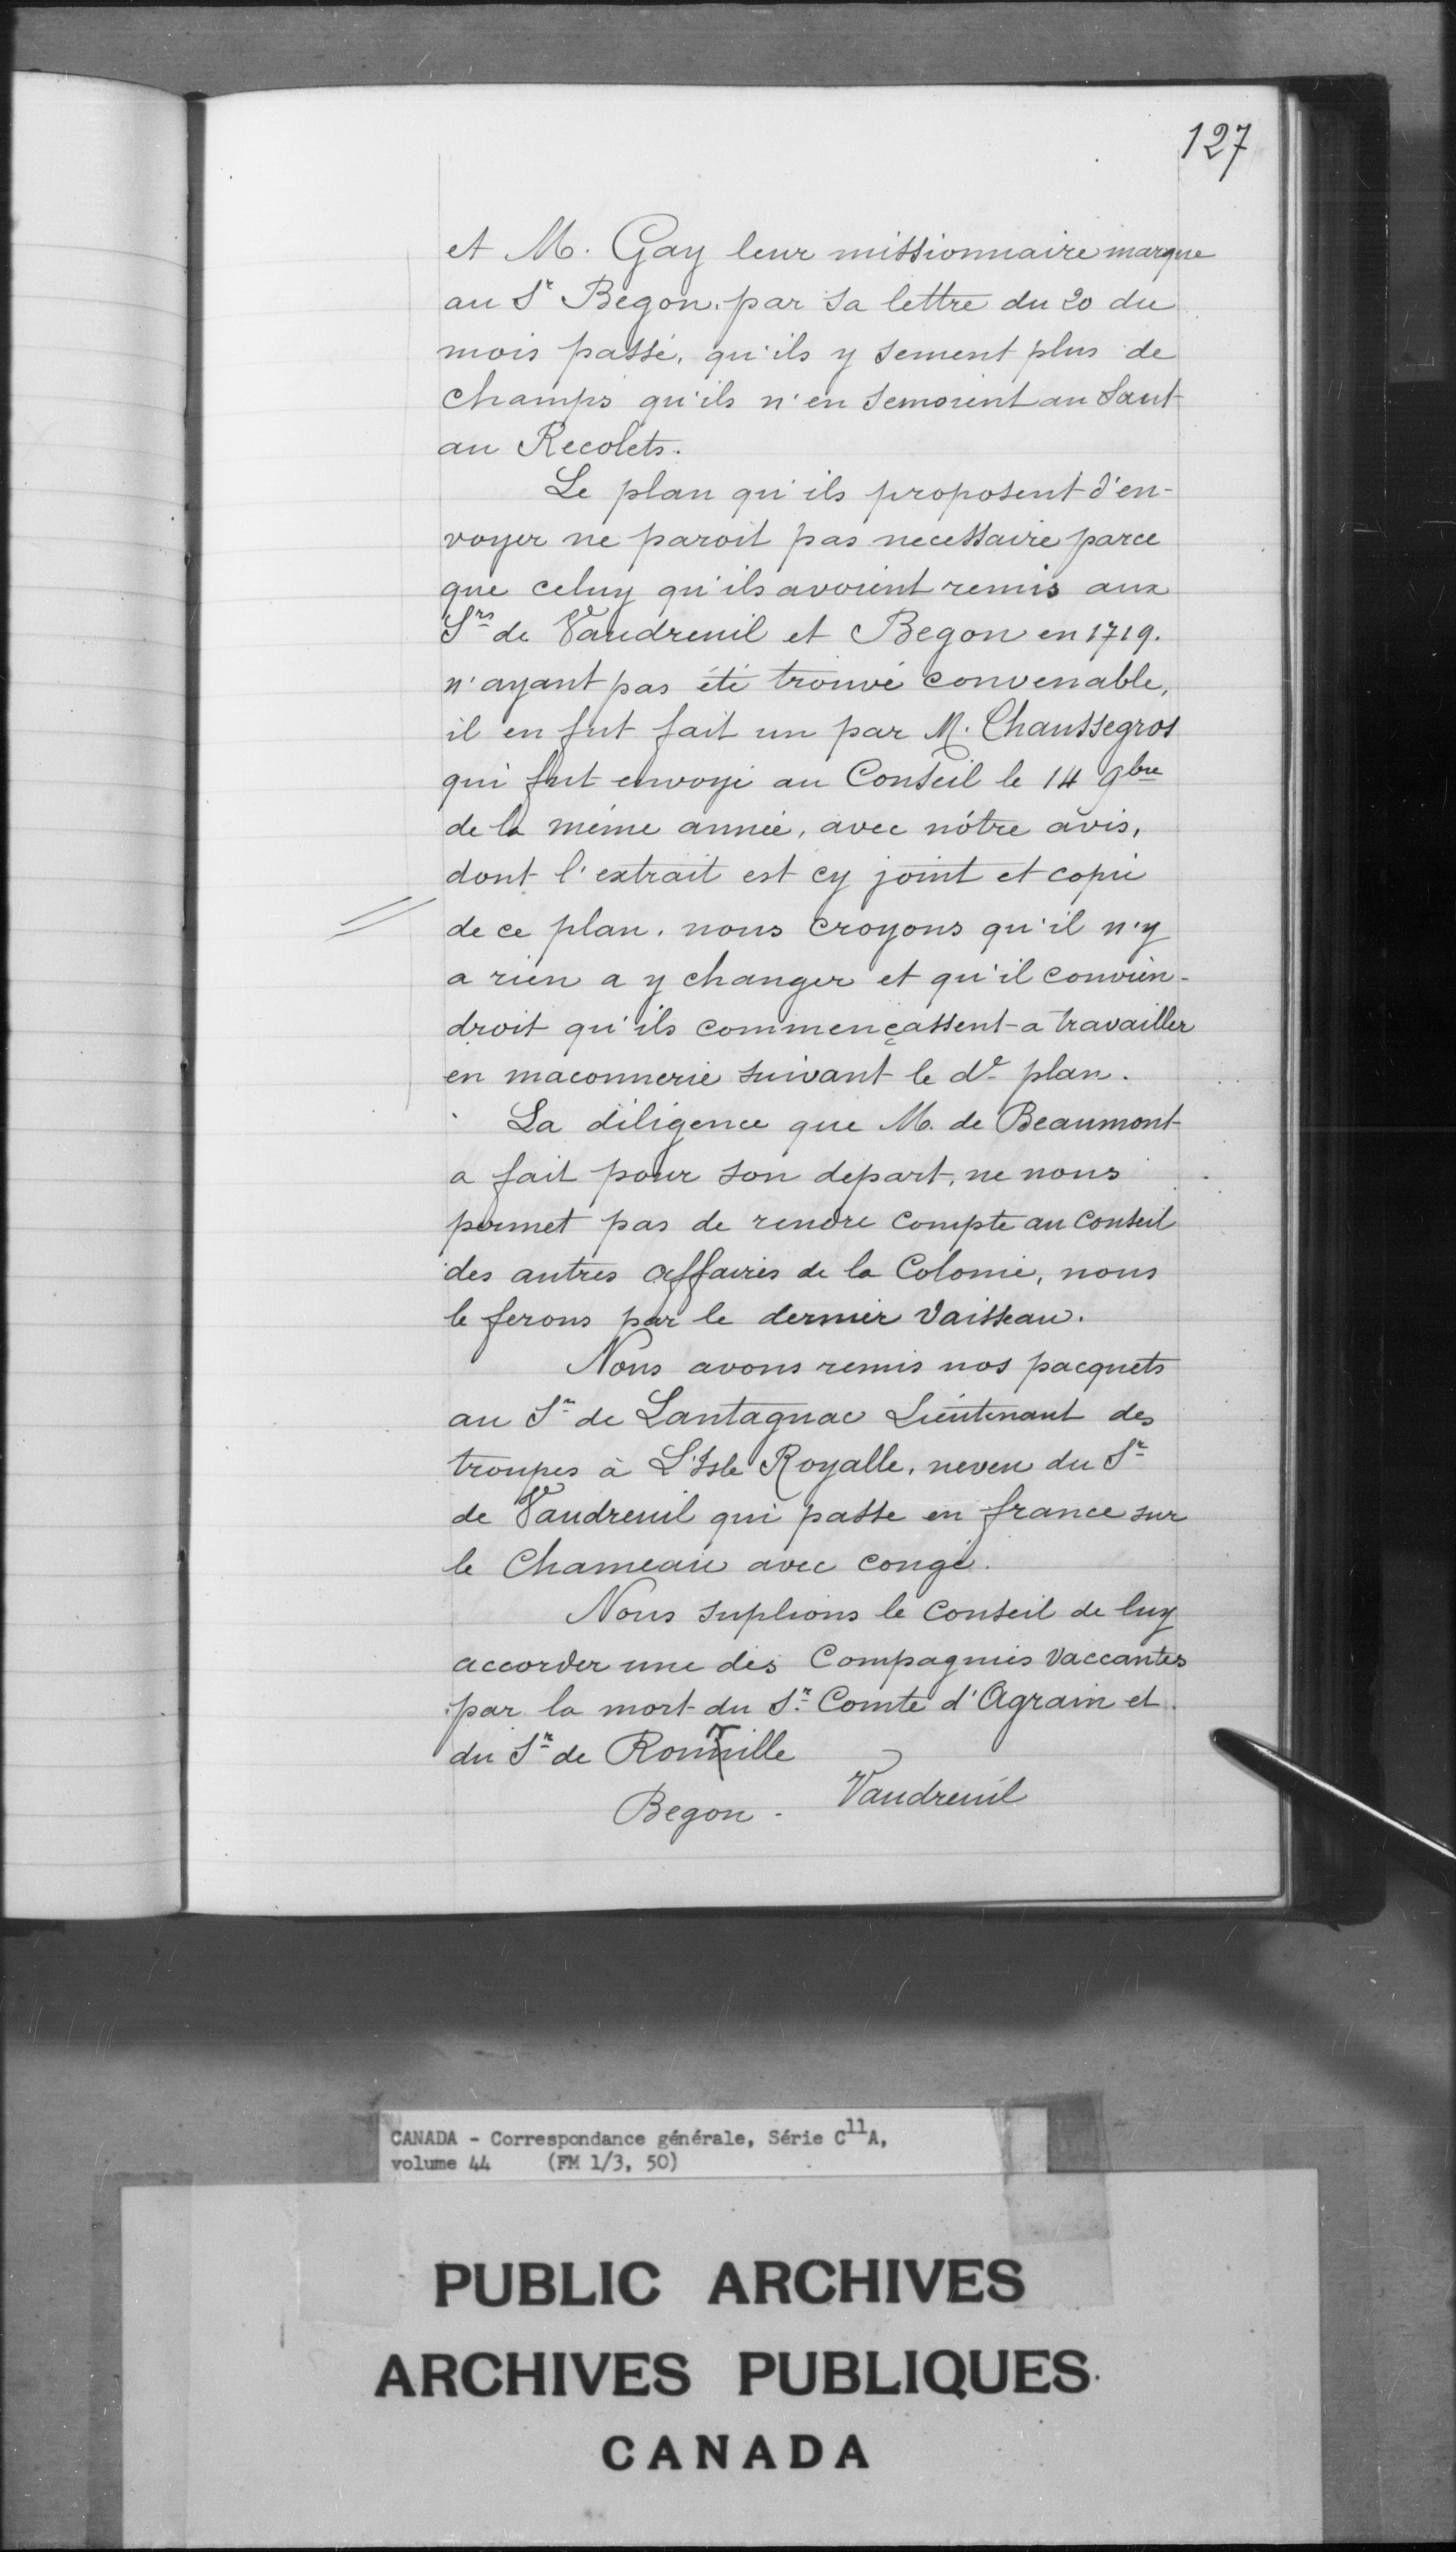 127
et M. Gay leur missionnaire marque
au Sr Begon. par sa lettre du 20 du
mois passé, qu'ils y sement plus de
champs qu'ils n'en semoient au Saut
au Recolets.
Le plan qu'ils proposent d'en-
voyer ne paroit pas necessaire parce
que celuy qu'ils avoient remis aux
Srs de Vaudreuil et Begon en 1719.
n'ayant pas été trouvé convenable,
il en fut fait un par M. Chaussegros
qui fut envoyé au Conseil le 14 9bre
de la même année, avec nôtre avis,
dont l'extrait est cy joint et copie
de ce plan. nous croyons qu'il n'y
a rien a y changer et qu'il convien-
droit qu'ils commençassent a travailler
en maconnerie suivant le dt plan.
La diligence que M. de Beaumont
a fait pour son depart, ne nous
permet pas de rendre compte au Conseil
des autres affaires de la Colonie, nous
le ferons par le dernier Vaisseau.
Nous avons remis nos pacquets
au Sr de Lantagnac Lieutenant des
troupes à L'Isle Royalle, neveu du Sr
de Vaudreuil qui passe en france sur
le Chameau avec congé.
Nous suplions le Conseil de luy
accorder une des Compagnies Vaccantes
par la mort du Sr Comte d'Agrain et
du Sr de
Begon. Vaudreuil
CANADA - Correspondance générale, Série C11A,
volume 44 (FM 1/3, 50)
PUBLIC ARCHIVES
ARCHIVES PUBLIQUES
CANADA